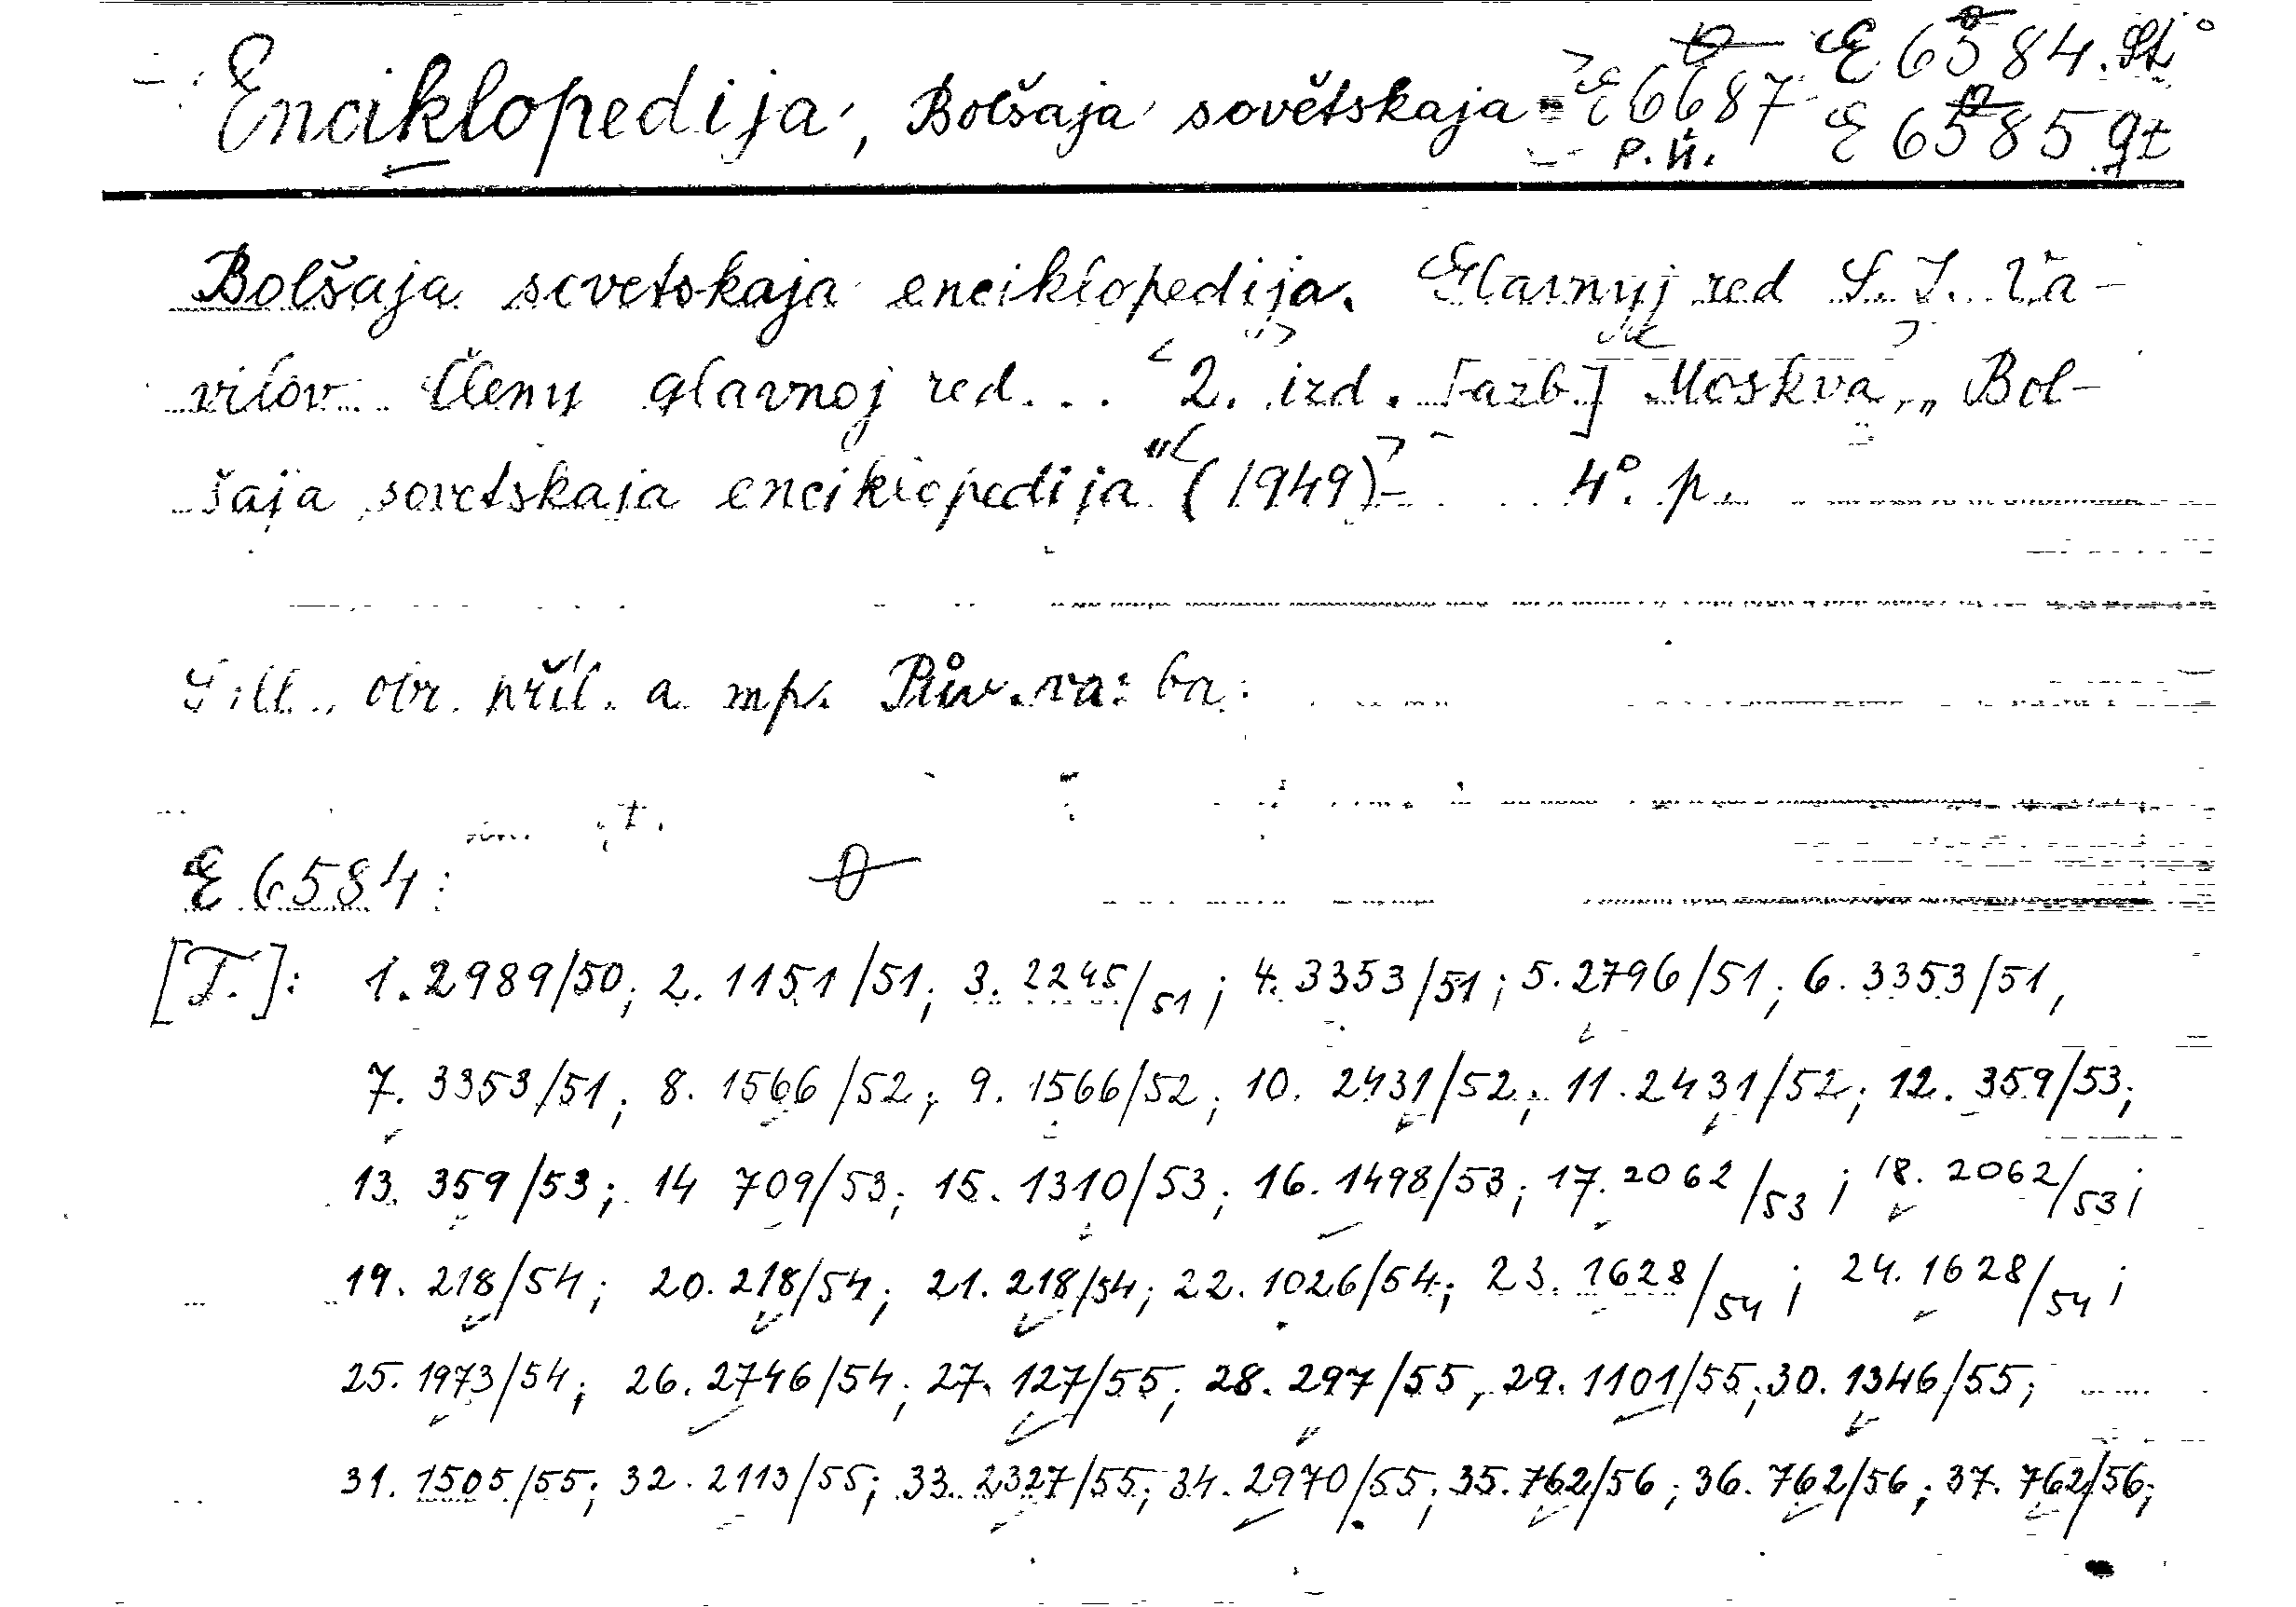 E 6584. St
Enciklopedija, Bolšaja sovětskaja = E 6687 E 6585 gt
P.Й.
Bolšaja sovetskaja enciklopedija. Glavnyj red S. I. Va-
vilov. Členy glavnoj red... 2. izd. [azb.] Moskva, „Bol-
šaja sovetskaja enciklopedija" (1949)- 4°. p.
ill., obr. příl. a mp. Pův. va: ba:
E 6584:
[T.]: 1. 2989/50; 2. 1151/51; 3. 2245/51; 4. 3353/51; 5. 2796/51; 6. 3353/51,
7. 3353/51; 8. 1566/52; 9. 1566/52; 10. 2431/52; 11. 2431/52; 12. 359/53;
13. 359/53; 14 709/53; 15. 1310/53; 16. 1498/53; 17. 2062/53; 18. 2062/53;
19. 218/54; 20. 218/54; 21. 218/54; 22. 1026/54; 23. 1628/54; 24. 1628/54;
25. 1973/54; 26. 2746/54; 27. 127/55; 28. 297/55, 29. 1101/55; 30. 1346/55;
31. 1505/55; 32. 2113/55; 33. 2327/55; 34. 2970/55; 35. 762/56; 36. 762/56; 37. 762/56;